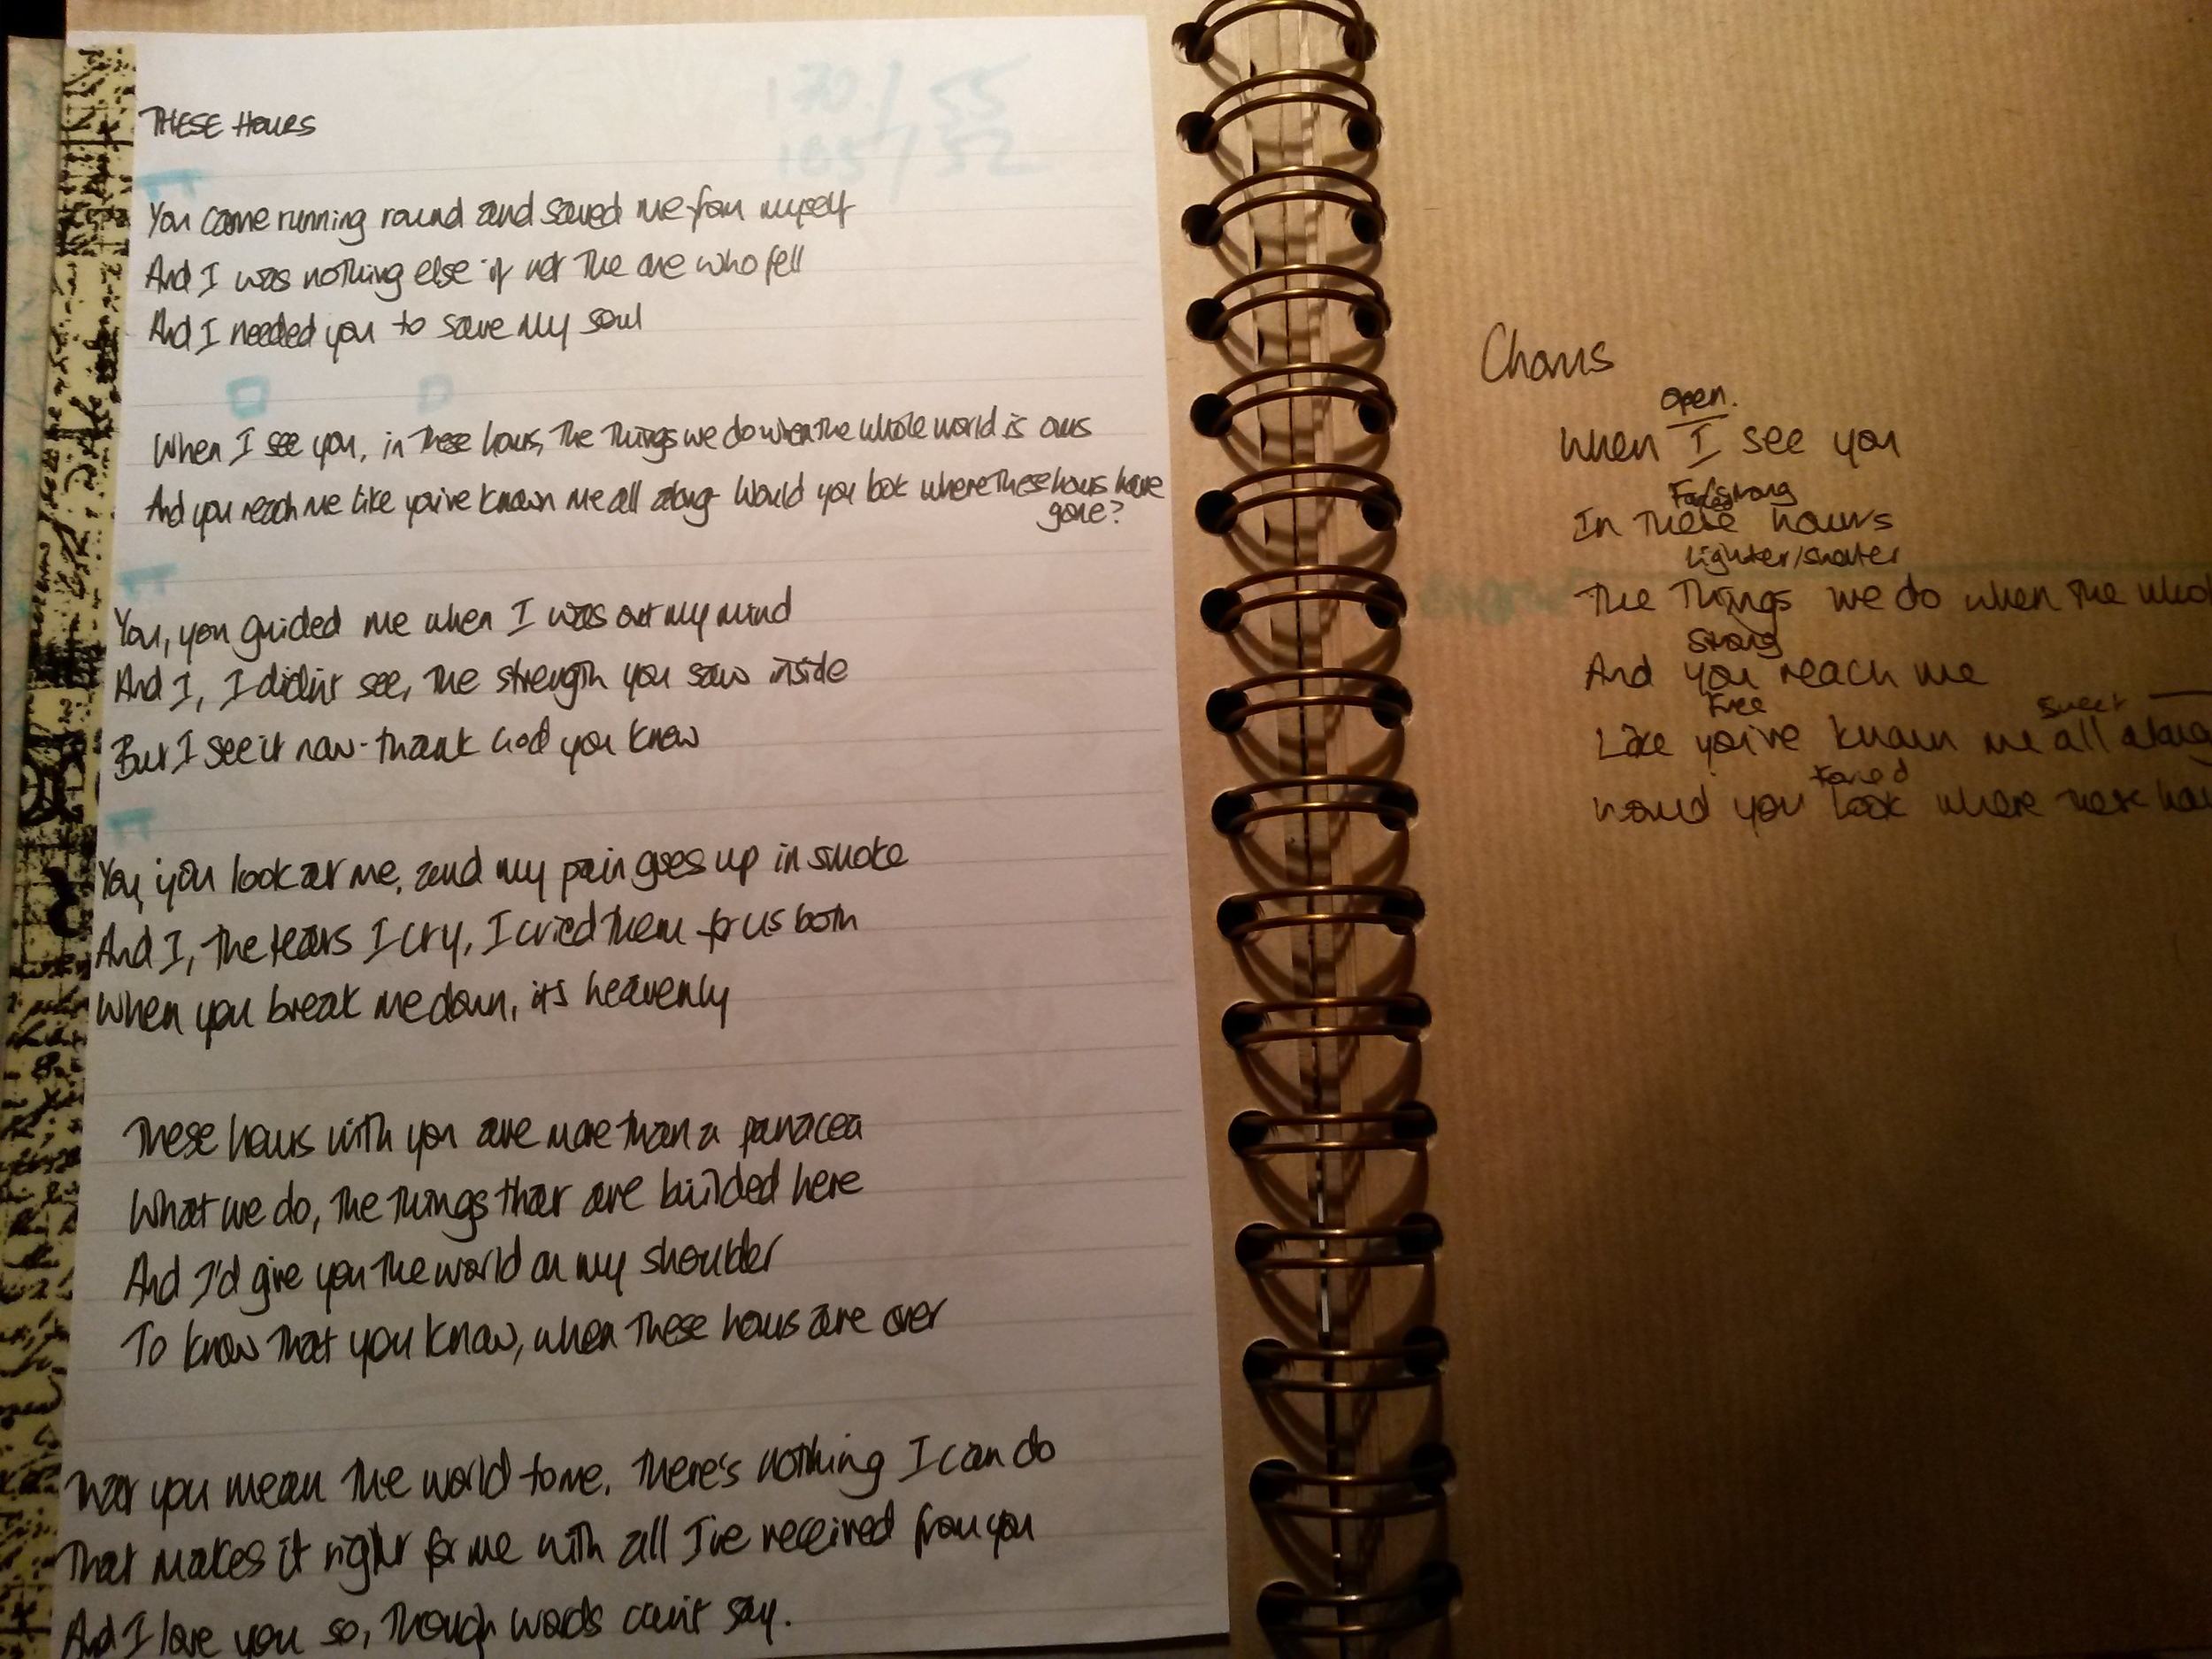 THESE HOURS
130/55
105/52
You came running round and saved me from myself
And I was nothing else if not the one who fell
And I needed you to save my soul
When I see you, in these hours, the things we do when the whole world is ours
And you reach me like you've known me all along - Would you look where these hours have
gone?
You, you guided me when I was out my mind
And I, I didn't see, the strength you saw inside
But I see it now - thank God you knew
You, you look at me, and my pain goes up in smoke
And I, the tears I cry, I cried them for us both
When you break me down, it's heavenly
These hours with you are more than a panacea
What we do, the things that are builded here
And I'd give you the world on my shoulder
To know that you know, when these hours are over
That you mean the world to me. There's nothing I can do
That makes it right for me with all I've received from you
And I love you so, though words can't say.
Chorus
Open.
When I see you
strong
In these hours
Lighter/shorter
The things we do when the whol
Strong
And you reach me
Free sweet
Like you've known me all along
Forced
Would you look where these hou